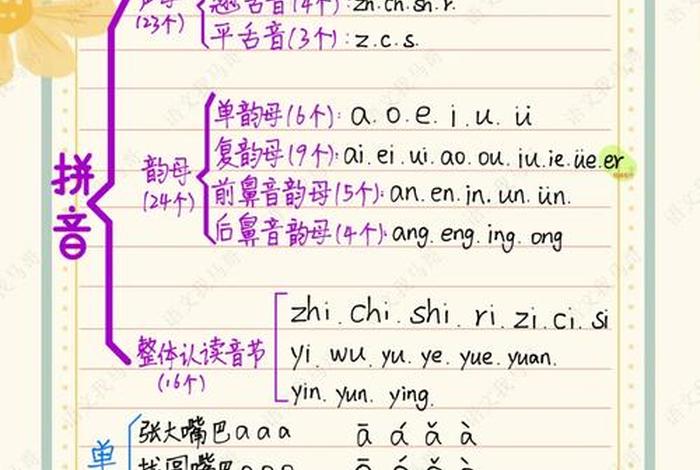 翘舌音(4个):zh.ch.sh.r.
(23个)
平舌音(3个):z.c.s.
单韵母(6个):a.o.e.i.u.ü
复韵母(9个):ai.ei.ui.ao.ou.iu.ie.üe.er
拼音
韵母
(24个)
前鼻音韵母(5个):an.en.in.un.ün.
后鼻音韵母(4个):ang.eng.ing.ong
整体认读音节
(16个)
zhi.chi.shi.ri.zi.ci.si
yi.wu.yu.ye.yue.yuan.
yin.yun.ying.
单
张大嘴巴aaa ā á ǎ à